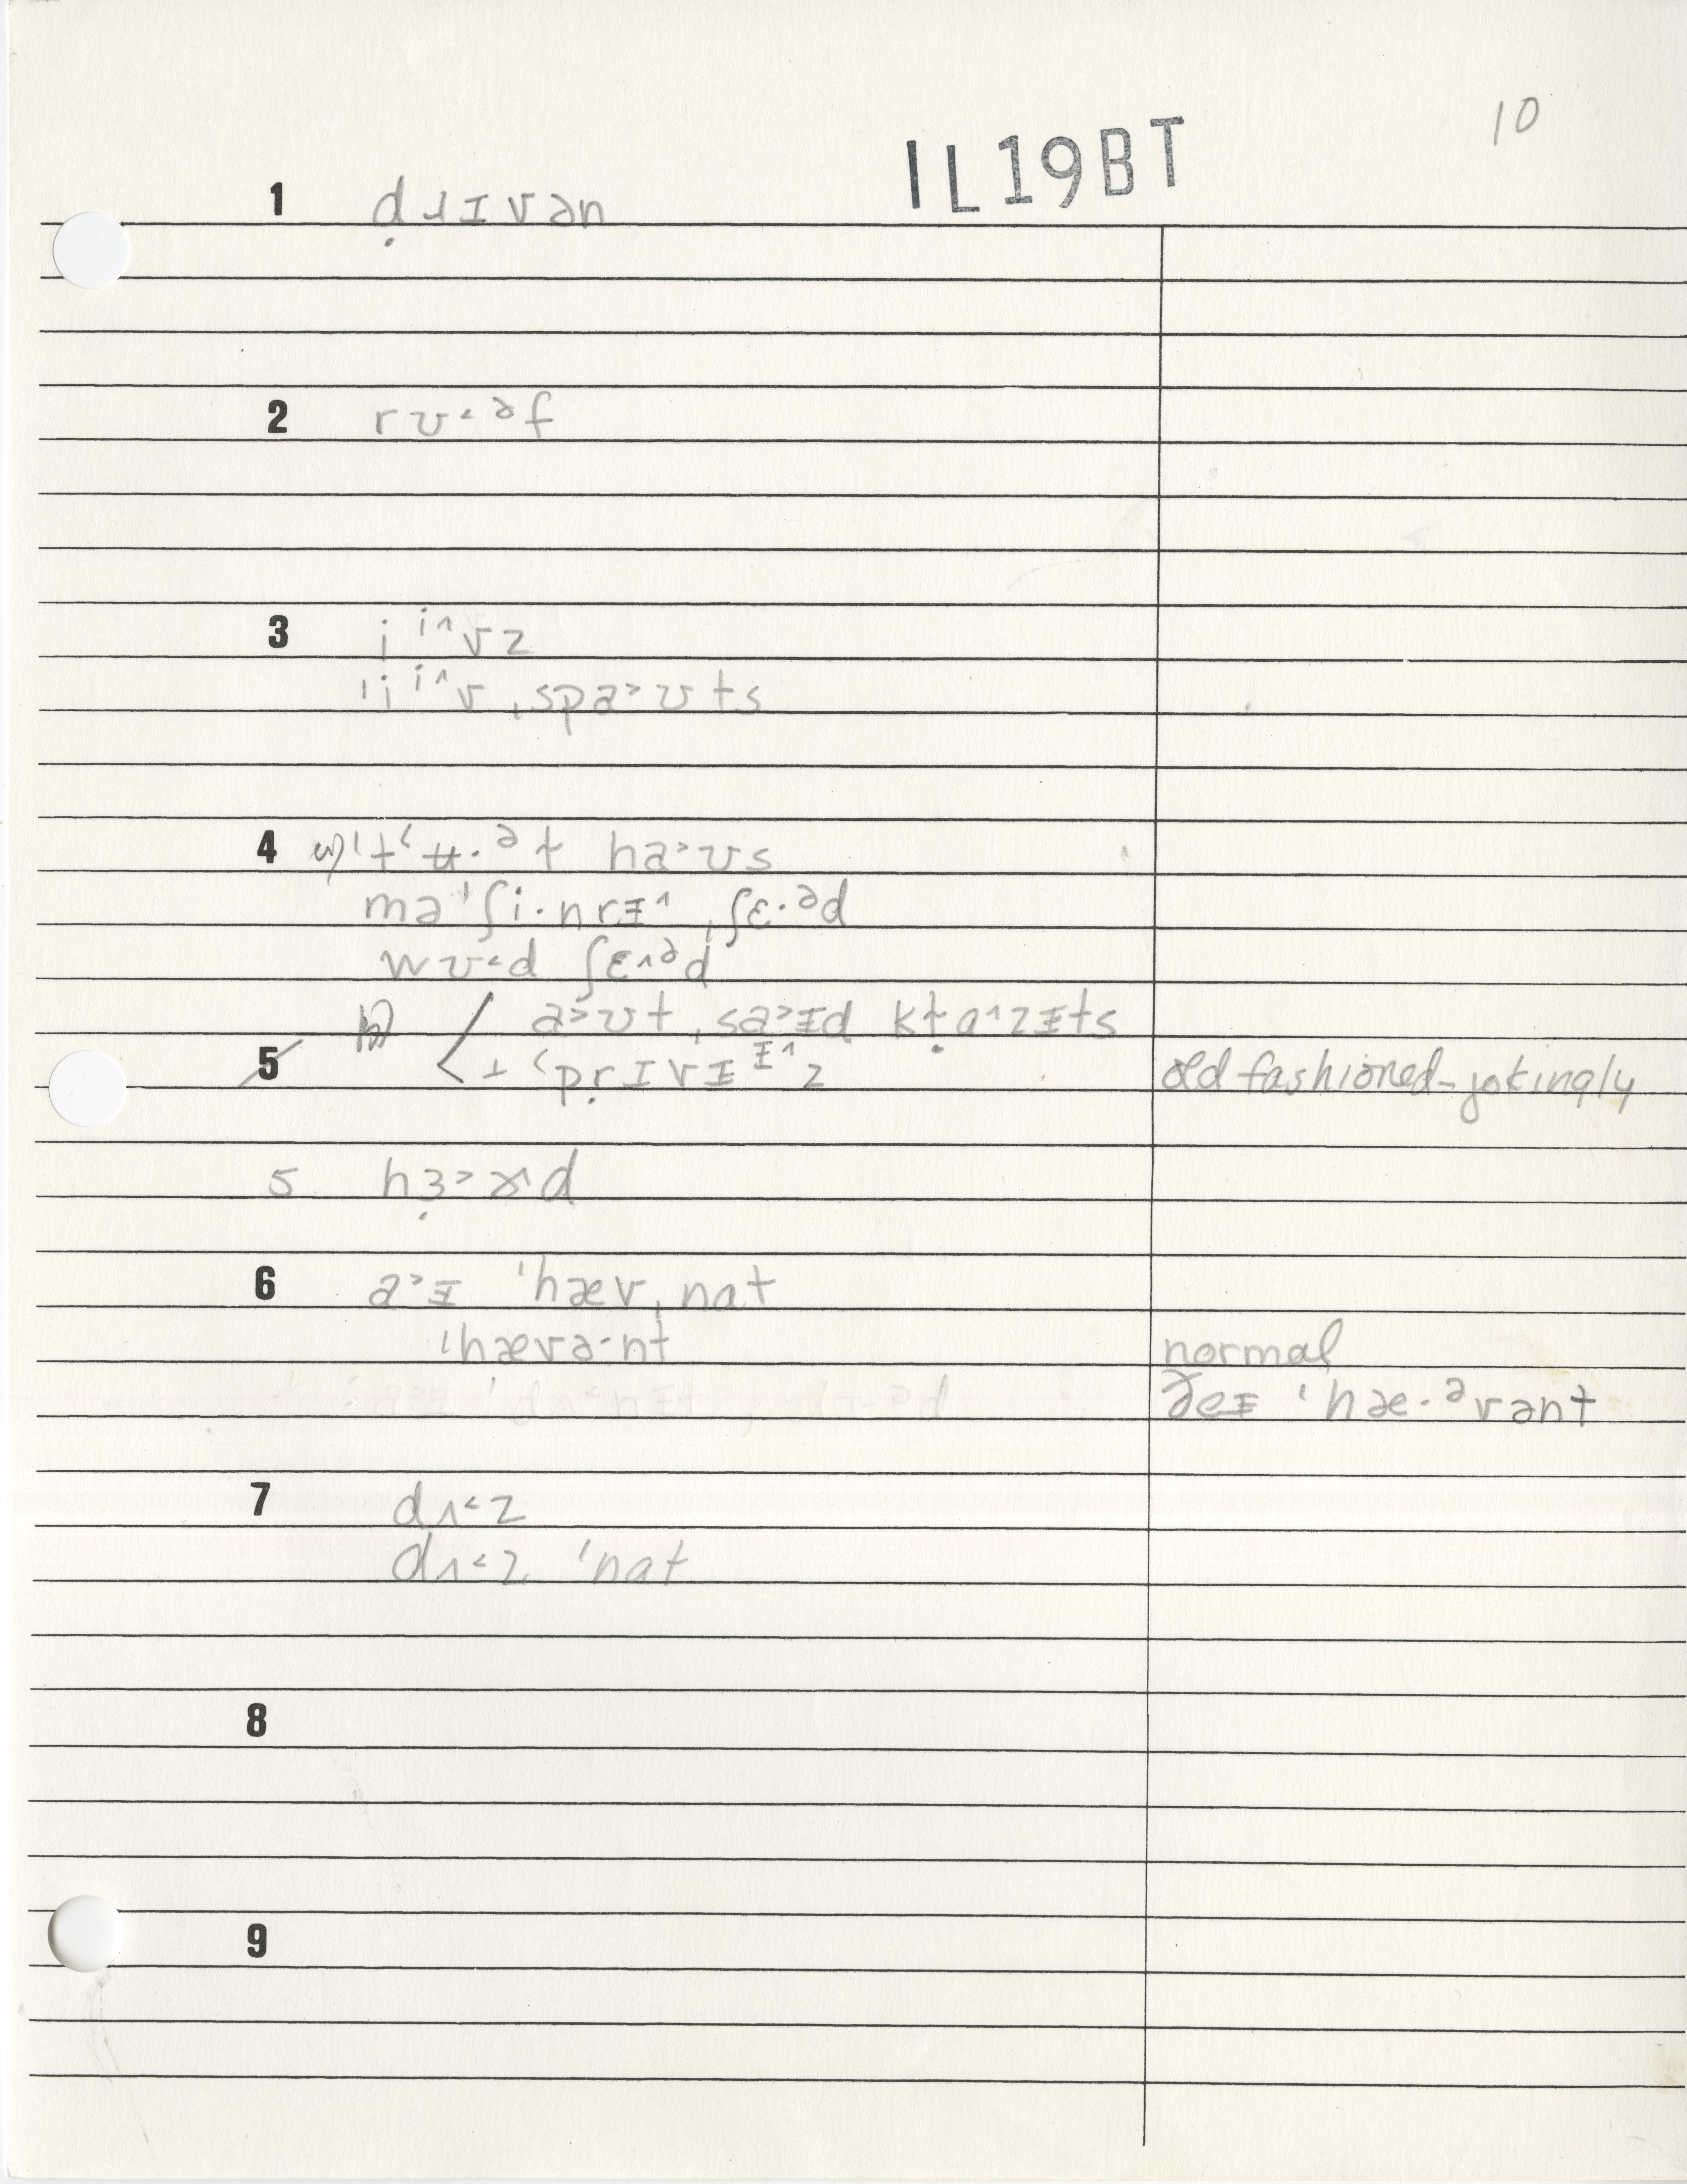 10
IL19BT
1 ḍɹɪvən
2 rʊ˂ᵊf
3 i ⁱ^vz
ˈi ⁱ^v ˌspa˃ʊts
4 ha˃ʊs
məˈʃi·nrᵻ^ ˌʃɛ·ᵊd
wʊ˂d ʃɛ^ᵊd
a˃ʊt ˌsa˃ᵻd kɫ̣ɑ^zᵻts
5 + ˂pṛɪvɪᵻ^z old fashioned - jokingly
5 hɜ̣˃ɚd
6 a˃ᵻ ˈhæv ˌnat
ˈhævə·nt normal
ðeᵻ ˈhæ·ᵊvənt
7 dʌ˂z
dʌ˂z ˈnat
8
9